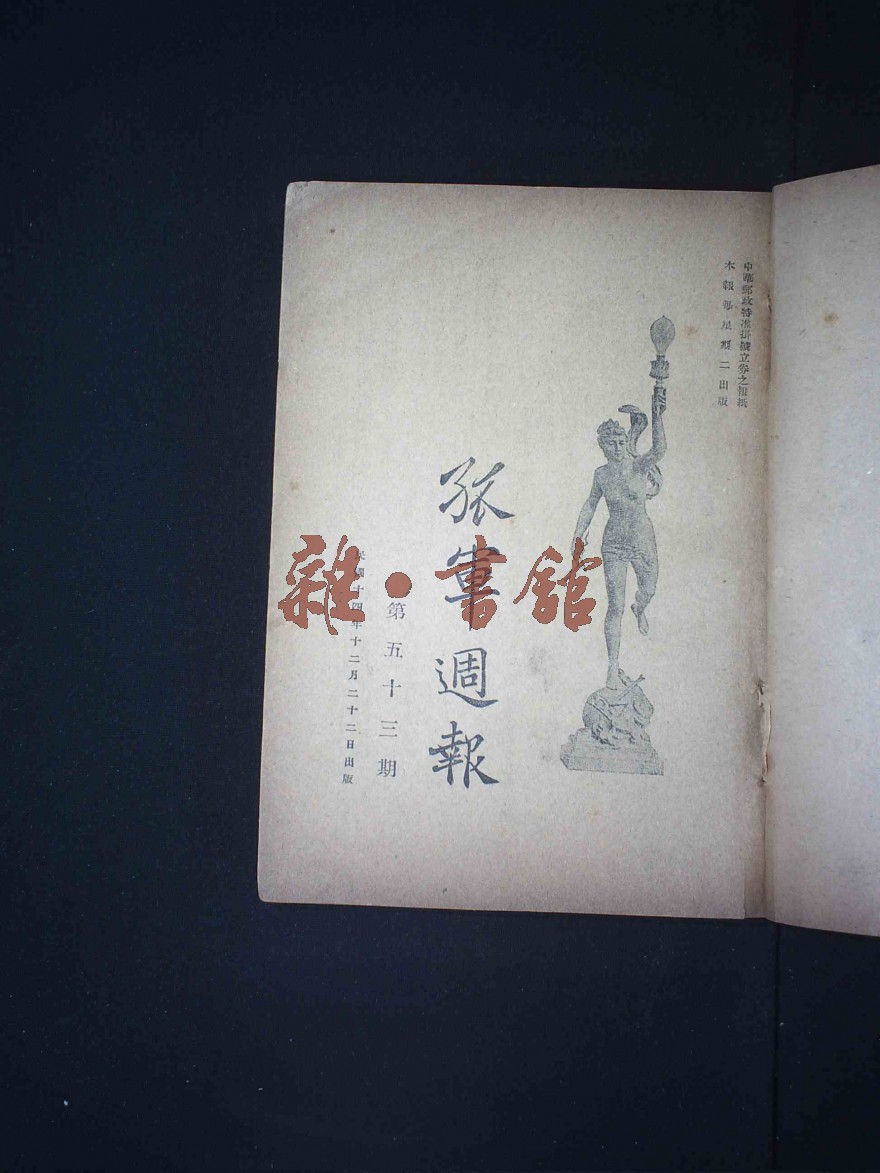 中華郵政特准掛號立券之報紙
本報每星期二出版
孤軍週報
第五十三期
民國十四年十二月二十二日出版
雜·書館